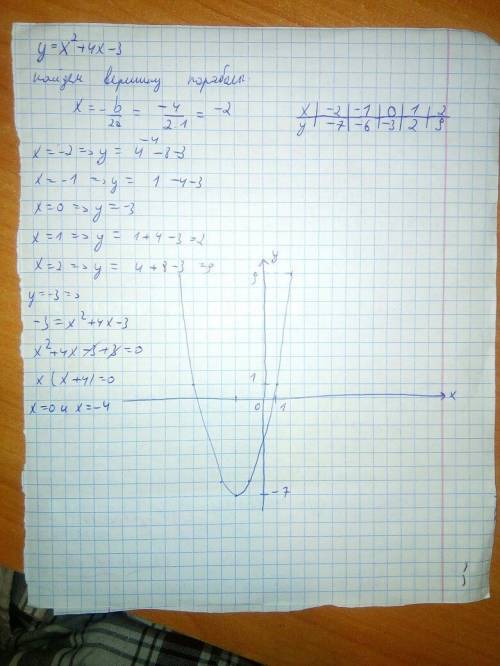 y=x²+4x-3
найдем вершину параболы
x = -b/2a = -4/2·1 = -2
x | -2 | -1 | 0 | 1 | 2
y | -7 | -6 | -3 | 2 | 9
x=-2 => y = 4-8-3
-4
x=-1 => y = 1-4-3
x=0 => y=-3
x=1 => y = 1+4-3=2
x=2 => y = 4+8-3=9
y=-3 =>
-3=x²+4x-3
x²+4x-3+3=0
x(x+4)=0
x=0 и x=-4
y
9
1
0
1
x
-7